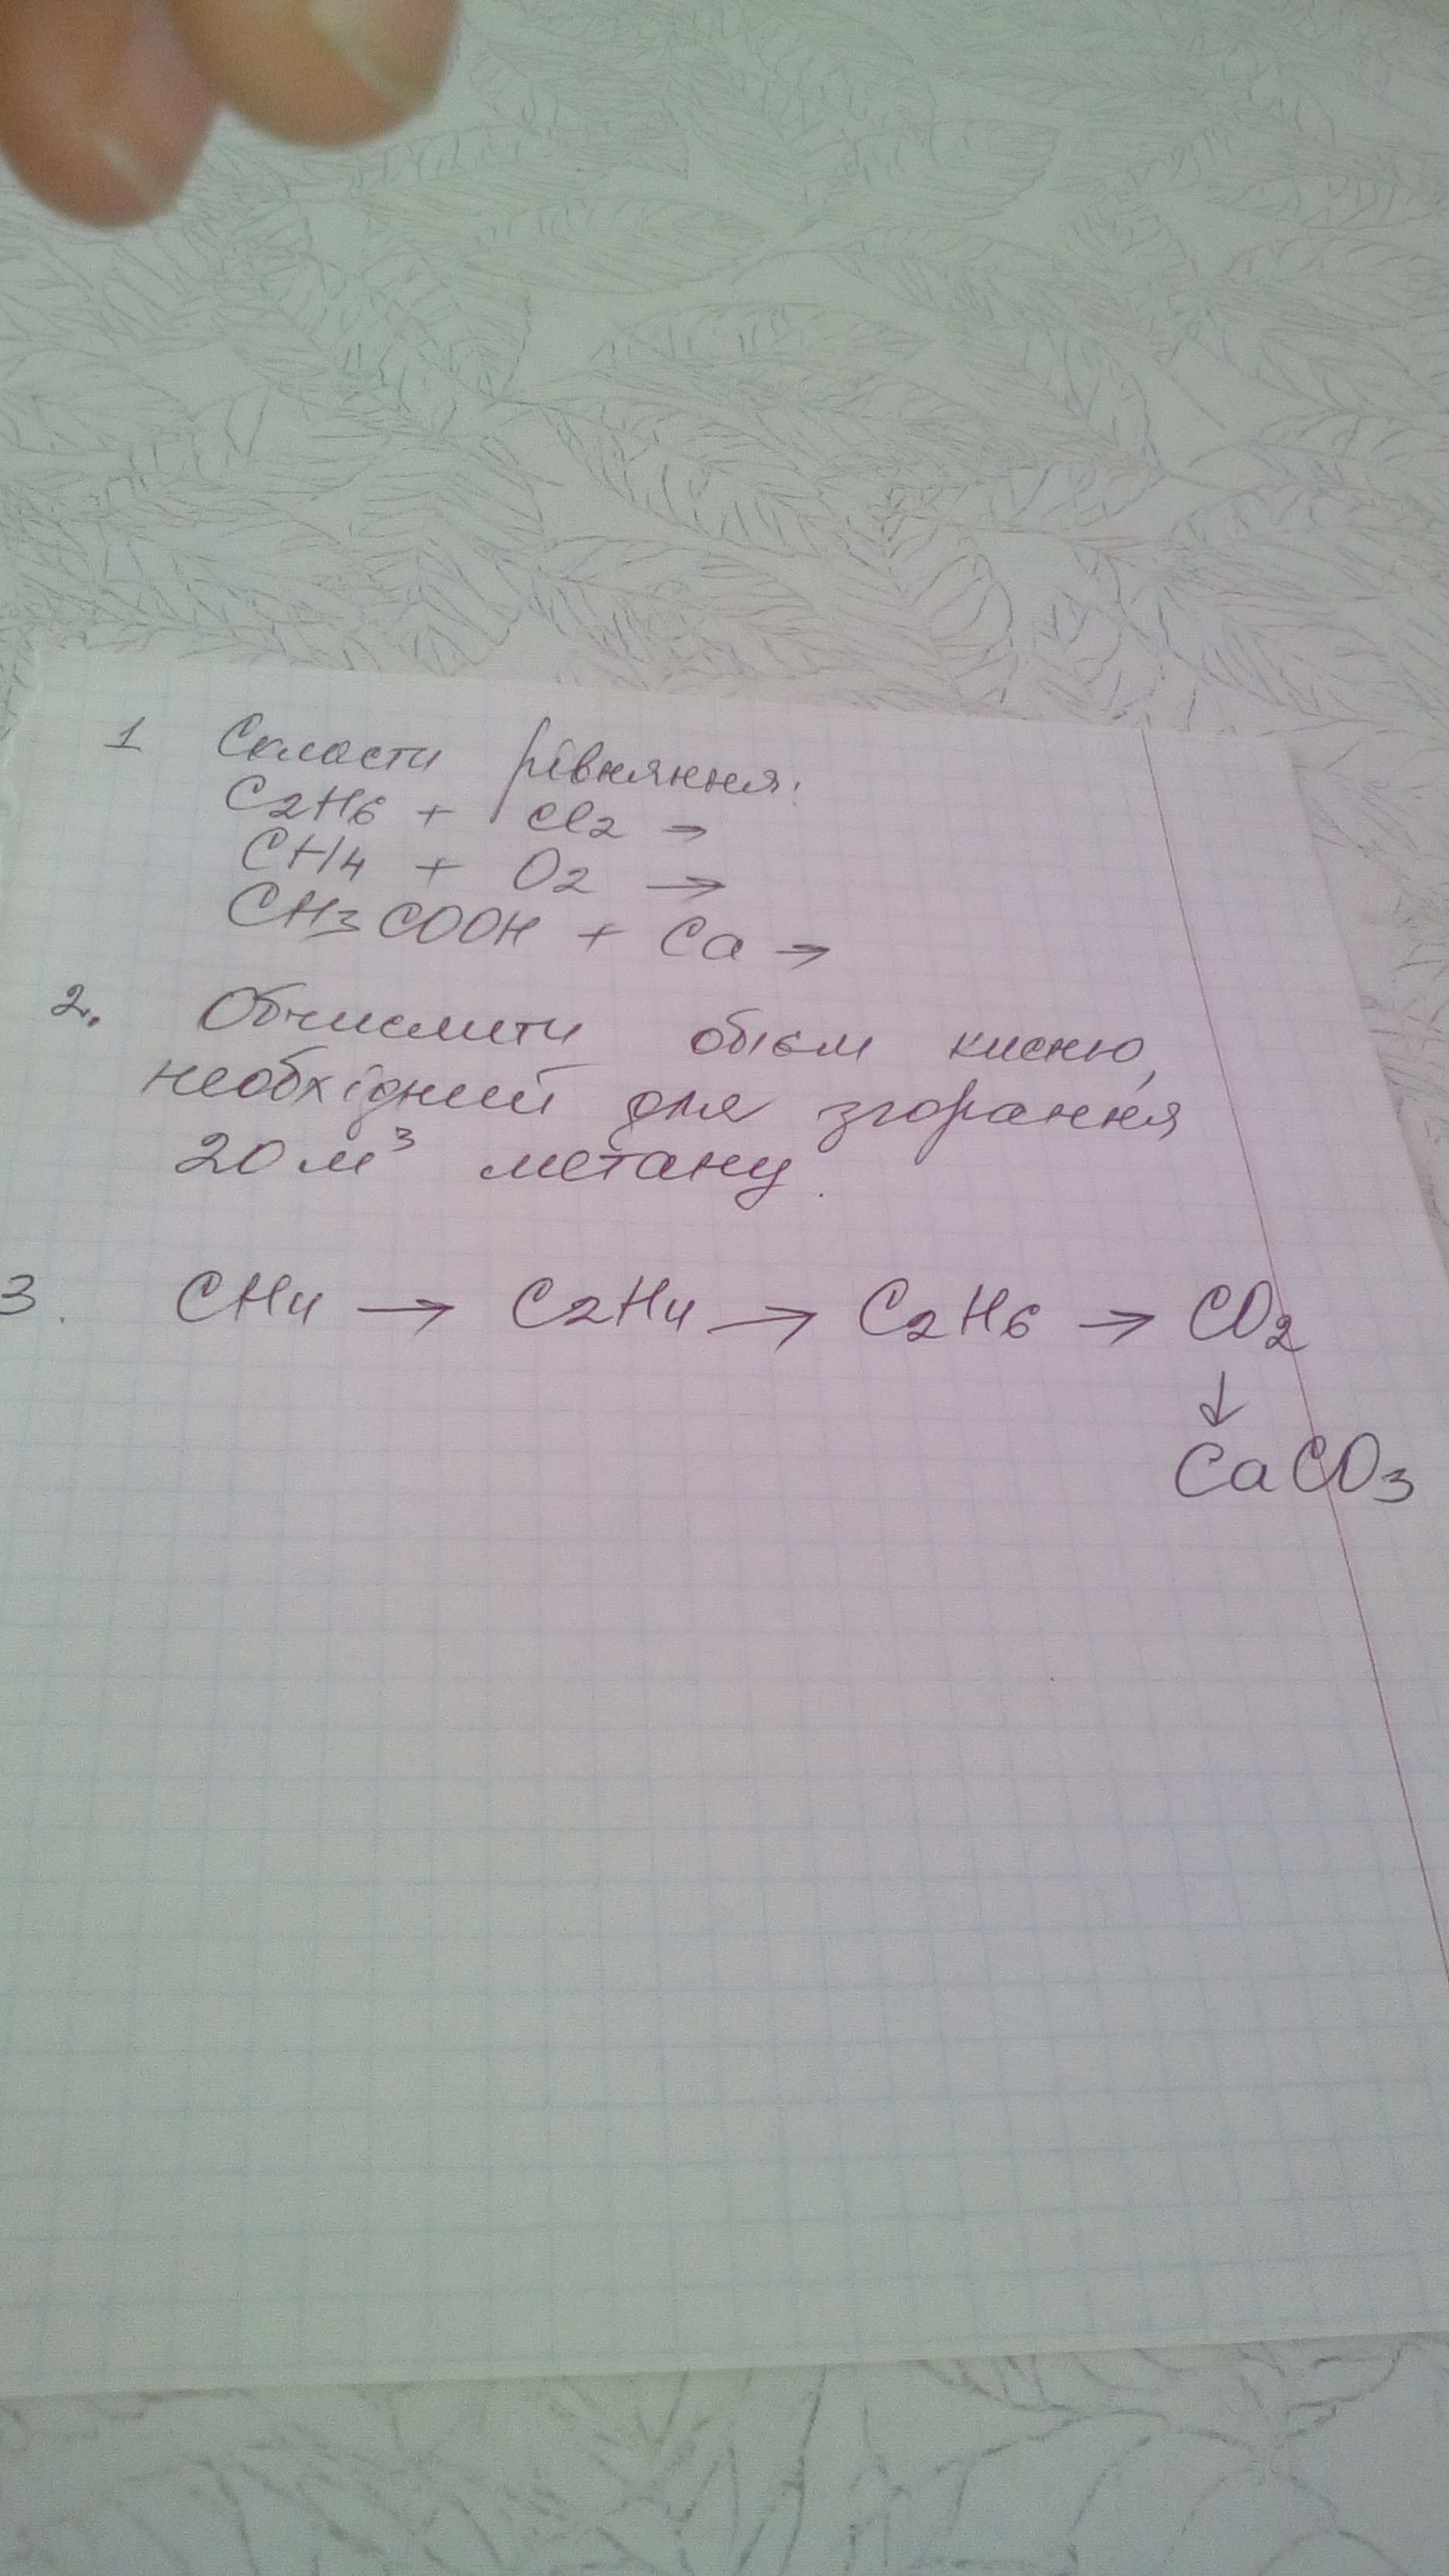 1 Скласти рівняння:
C2H6 + Cl2 →
CH4 + O2 →
CH3COOH + Ca →
2. Обчислити обієм кисню,
необхідний для згорання
20 м³ метану.
3. CH4 → C2H4 → C2H6 → CO2
↓
CaCO3